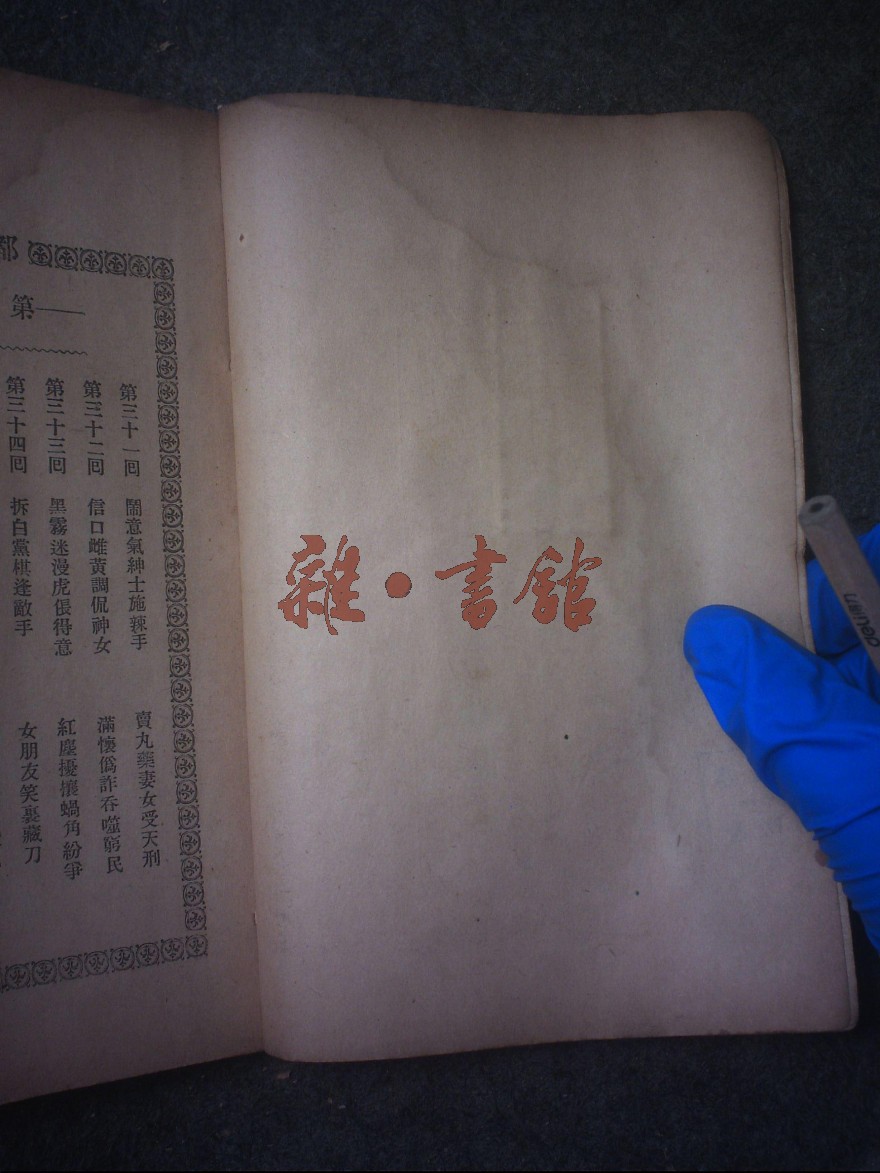 都
第一
第三十一回 鬧意氣紳士施辣手 賣丸藥妻女受天刑
第三十二回 信口雌黃調侃神女 滿懷僞詐吞噬窮民
第三十三回 黑霧迷漫虎倀得意 紅塵擾攘蝸角紛爭
第三十四回 拆白黨棋逢敵手 女朋友笑裏藏刀
雜·書館
deli